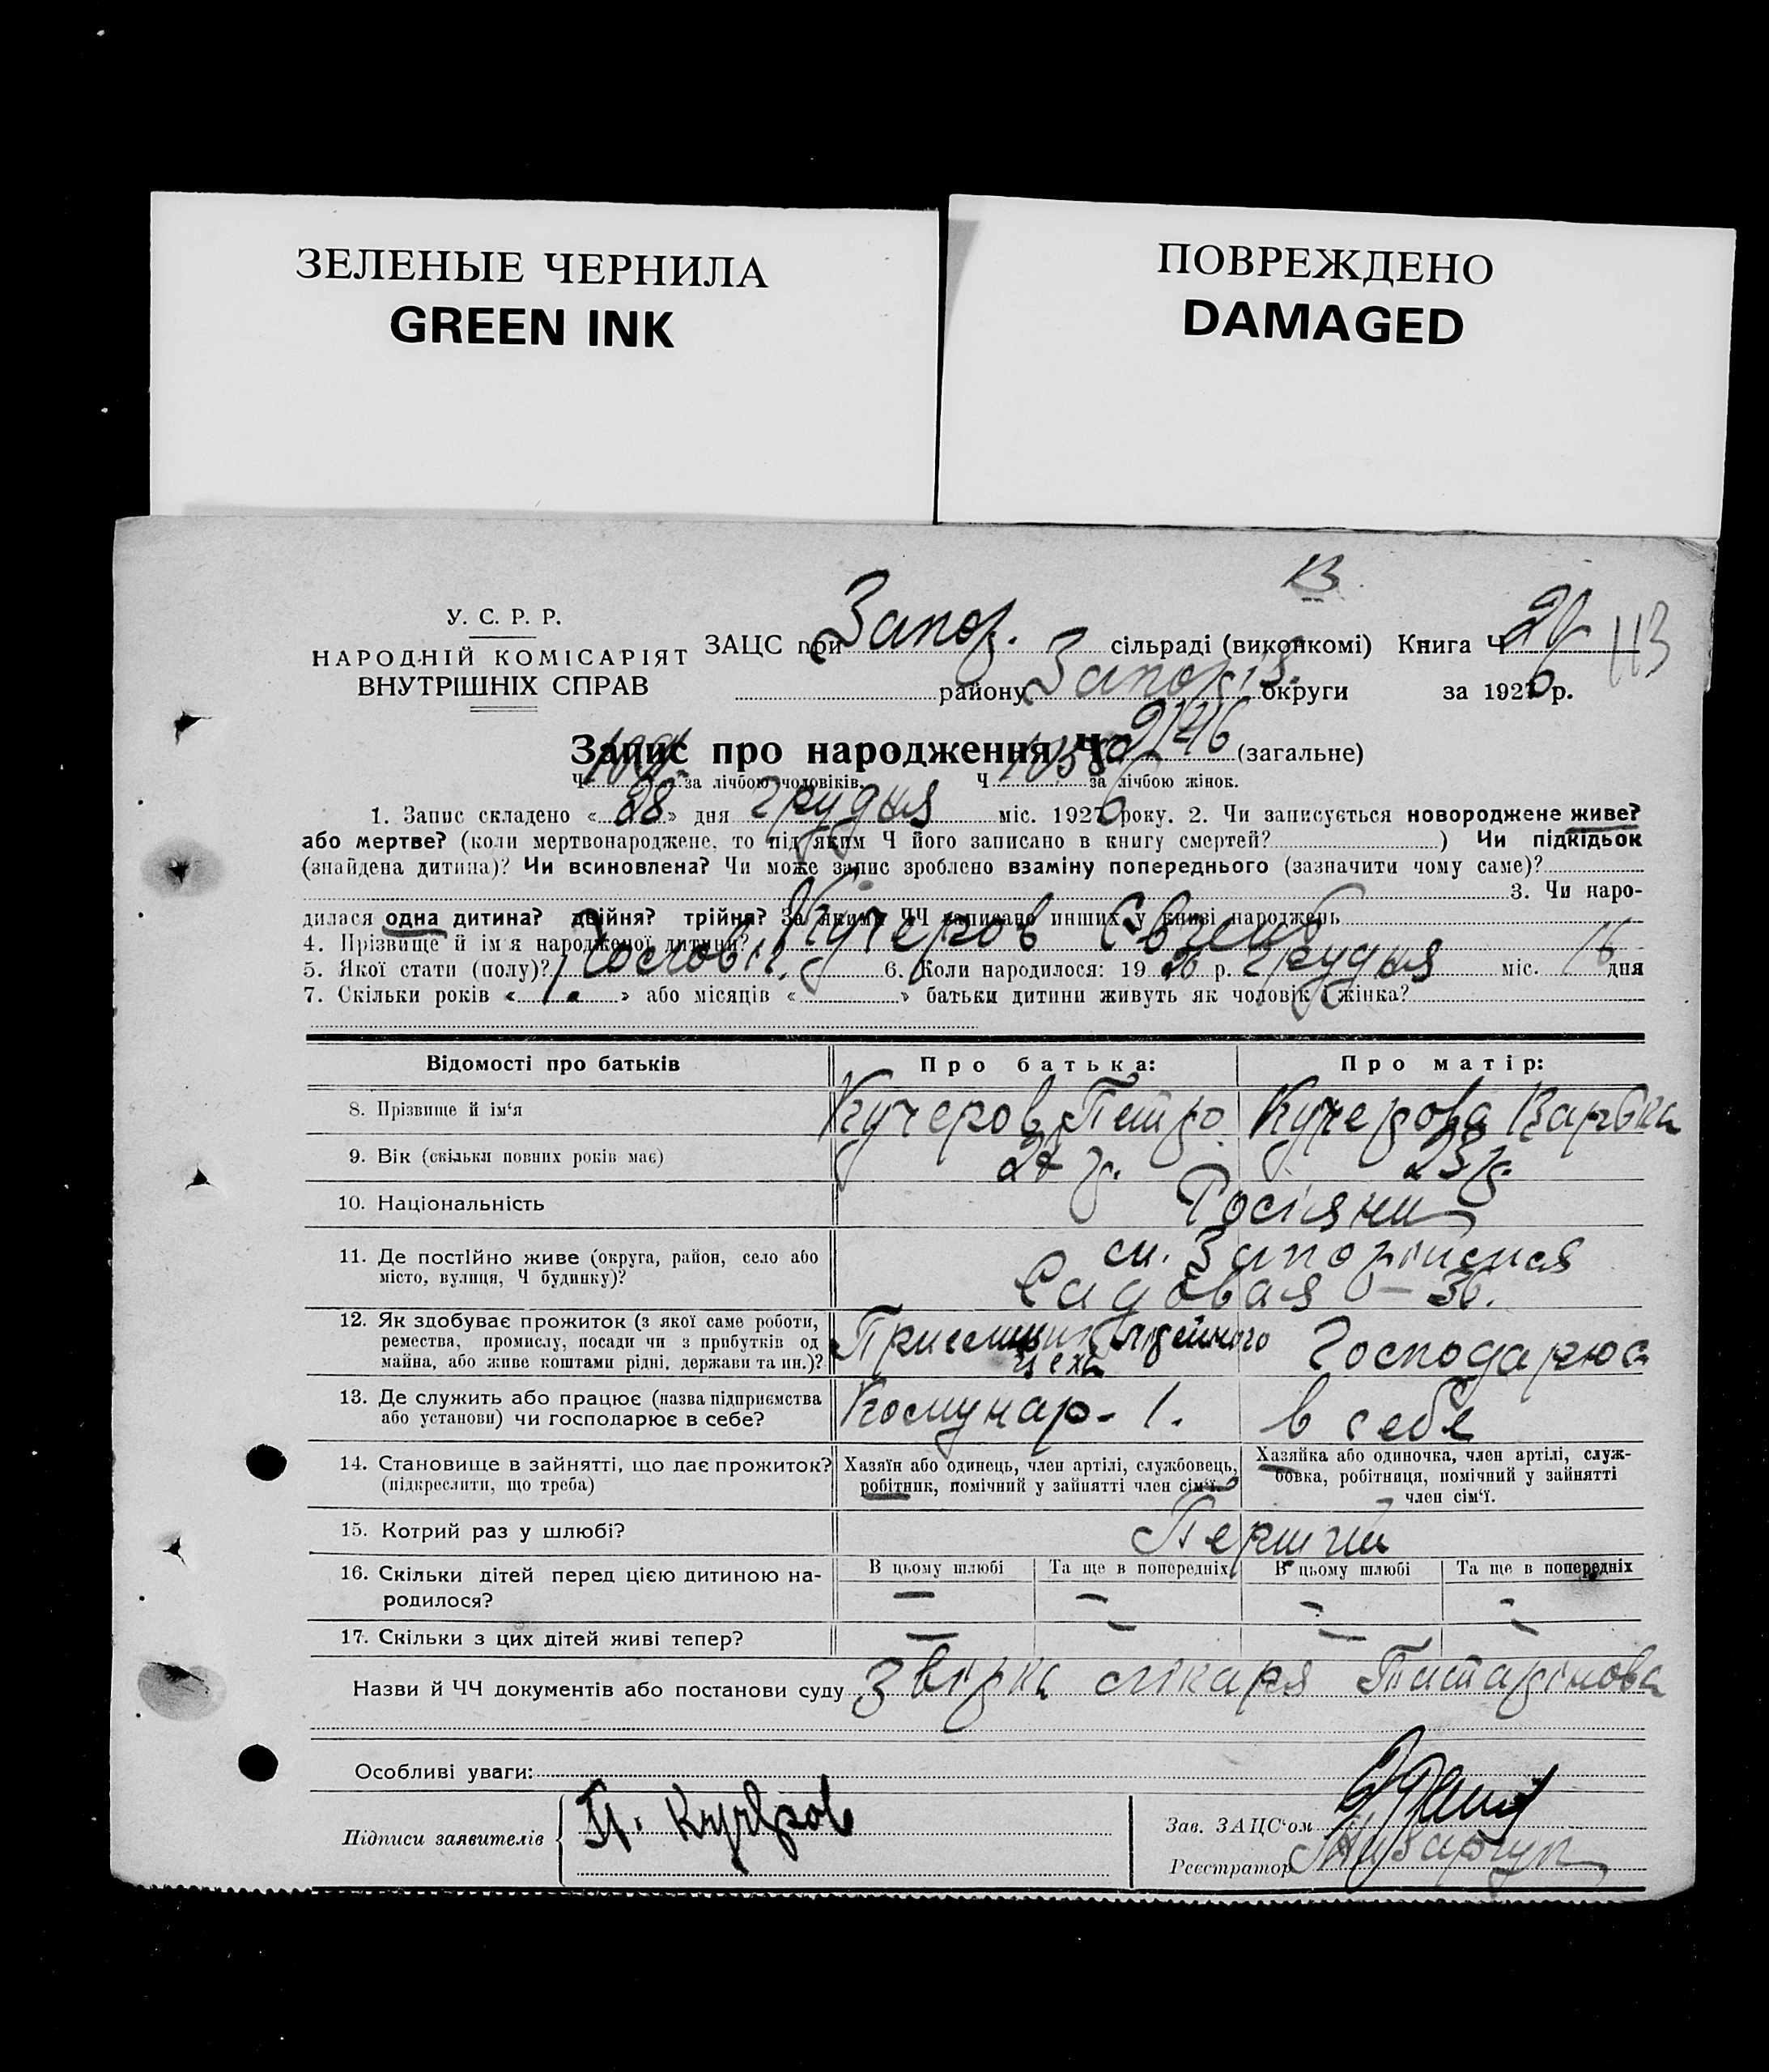 ЗЕЛЕНЫЕ ЧЕРНИЛА
GREEN INK
ПОВРЕЖДЕНО
DAMAGED
113
У. С. Р. Р.
НАРОДНІЙ КОМІСАРІЯТ
ВНУТРІШНІХ СПРАВ
ЗАЦС при Запор. сільраді (виконкомі) Книга Ч
району Запоріз. округи за 1926 р.
Запис про народження Ч 2146 (загальне)
Ч за лічбою чоловіків. Ч 1058 за лічбою жінок.
1. Запис складено «28» дня грудня міс. 1926 року. 2. Чи записується новороджене живе?
або мертве? (коли мертвонароджене, то під яким Ч його записано в книгу смертей? ) Чи підкідьок
(знайдена дитина)? Чи всиновлена? Чи може запис зроблено взаміну попереднього (зазначити чому саме)?
3. Чи наро-
дилася одна дитина? двійня? трійня? За якими ЧЧ записано инших у книзі народжень
4. Прізвище й ім'я народженої дитини? Кучеров Євген
5. Якої стати (полу)? Чоловіч. 6. Коли народилося: 1926 р. грудня міс. 16 дня
7. Скільки років «1.» або місяців « » батьки дитини живуть як чоловік і жінка?
Відомості про батьків
Про батька:
Про матір:
8. Прізвище й ім'я
Кучеров Петро
Кучерова Варвка
9. Вік (скільки повних років має)
р.
23 р.
10. Національність
Росіяни
11. Де постійно живе (округа, район, село або
місто, вулиця, Ч будинку)?
м.
Садовая – 36.
12. Як здобуває прожиток (з якої саме роботи,
ремества, промислу, посади чи з прибутків од
майна, або живе коштами рідні, держави та ин.)?
ливейного
цеха
Господарює
13. Де служить або працює (назва підприємства
або установи) чи господарює в себе?
Комунар - 1.
в себе
14. Становище в зайнятті, що дає прожиток?
(підкреслити, що треба)
Хазяїн або одинець, член артілі, службовець,
робітник, помічний у зайнятті член сім'ї.
Хазяйка або одиночка, член артілі, служ-
бовка, робітниця, помічний у зайнятті
член сім'ї.
15. Котрий раз у шлюбі?
Перший
16. Скільки дітей перед цією дитиною на-
родилося?
В цьому шлюбі
Та ще в попередніх
В цьому шлюбі
Та ще в попередніх
— — — —
17. Скільки з цих дітей живі тепер?
— — — —
Назви й ЧЧ документів або постанови суду звірка лікаря
Особливі уваги:
Підписи заявителів
П. Кучеров
Зав. ЗАЦС'ом
Реєстратор